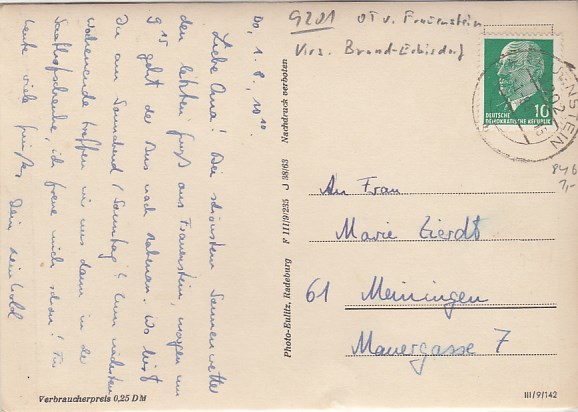 9201 OT v. Frauenstein
Krs. Brand-Erbisdorf
Do, 1. 8., 10 10
Liebe Oma! Bei schönstem Sonnenwetter
den letzten Gruß aus Frauenstein, morgen um
9 15 geht der Bus nach Rabenau. Wo bist
Du am Sonnabend / Sonntag? Zum nächsten
Wochenende treffen wir uns dann in der
ich freue mich schon! Für
heute viele Grüße, Dein Reinhold
Verbraucherpreis 0,25 DM
Photo-Eulitz, Radeburg F III/9/235 J 38/63 Nachdruck verboten
10
DEUTSCHE
DEMOKRATISCHE REPUBLIK
ENSTEIN
9202
846
1,-
An Frau
Marie Zierdt
61 Meiningen
Mauergasse 7
III/9/142